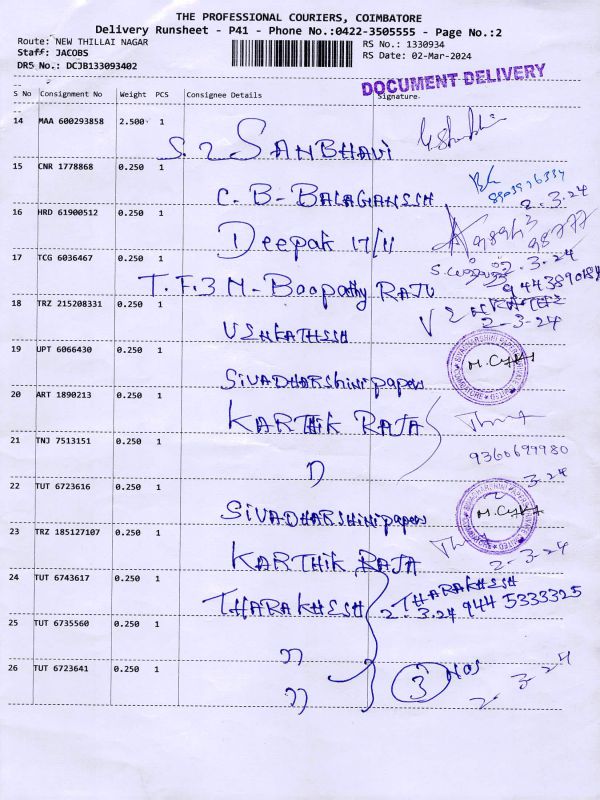 THE PROFESSIONAL COURIERS, COIMBATORE
Delivery Runsheet - P41 - Phone No.:0422-3505555 - Page No.:2
Route: NEW THILLAI NAGAR RS No.: 1330934
Staff: JACOBS RS Date: 02-Mar-2024
DRS No.: DCJB133093402
DOCUMENT DELIVERY
S No Consignment No Weight PCS Consignee Details Signature
14 MAA 600293858 2.500 1
S. 2 SANBHAVI
15 CNR 1778868 0.250 1
C. B - BALAGANESH 2.3.24
16 HRD 61900512 0.250 1
Deepak 17/11
17 TCG 6036467 0.250 1 2.3.24
T.F.3 M- Boopathy RAJU
18 TRZ 215208331 0.250 1 2-3-24
VENKATHESH
19 UPT 6066430 0.250 1
SIVADHARSHINI PAPERS
20 ART 1890213 0.250 1
KARTHIK RAJA
21 TNJ 7513151 0.250 1 9360699980
22 TUT 6723616 0.250 1
SIVADHARSHINI PAPERS
23 TRZ 185127107 0.250 1 2-3-24
KARTHIK RAJA
24 TUT 6743617 0.250 1 THARAKHESH
THARAKHESH 2.3.24 944 5333325
25 TUT 6735560 0.250 1
"
26 TUT 6723641 0.250 1 3 Nos 2-3-24
"